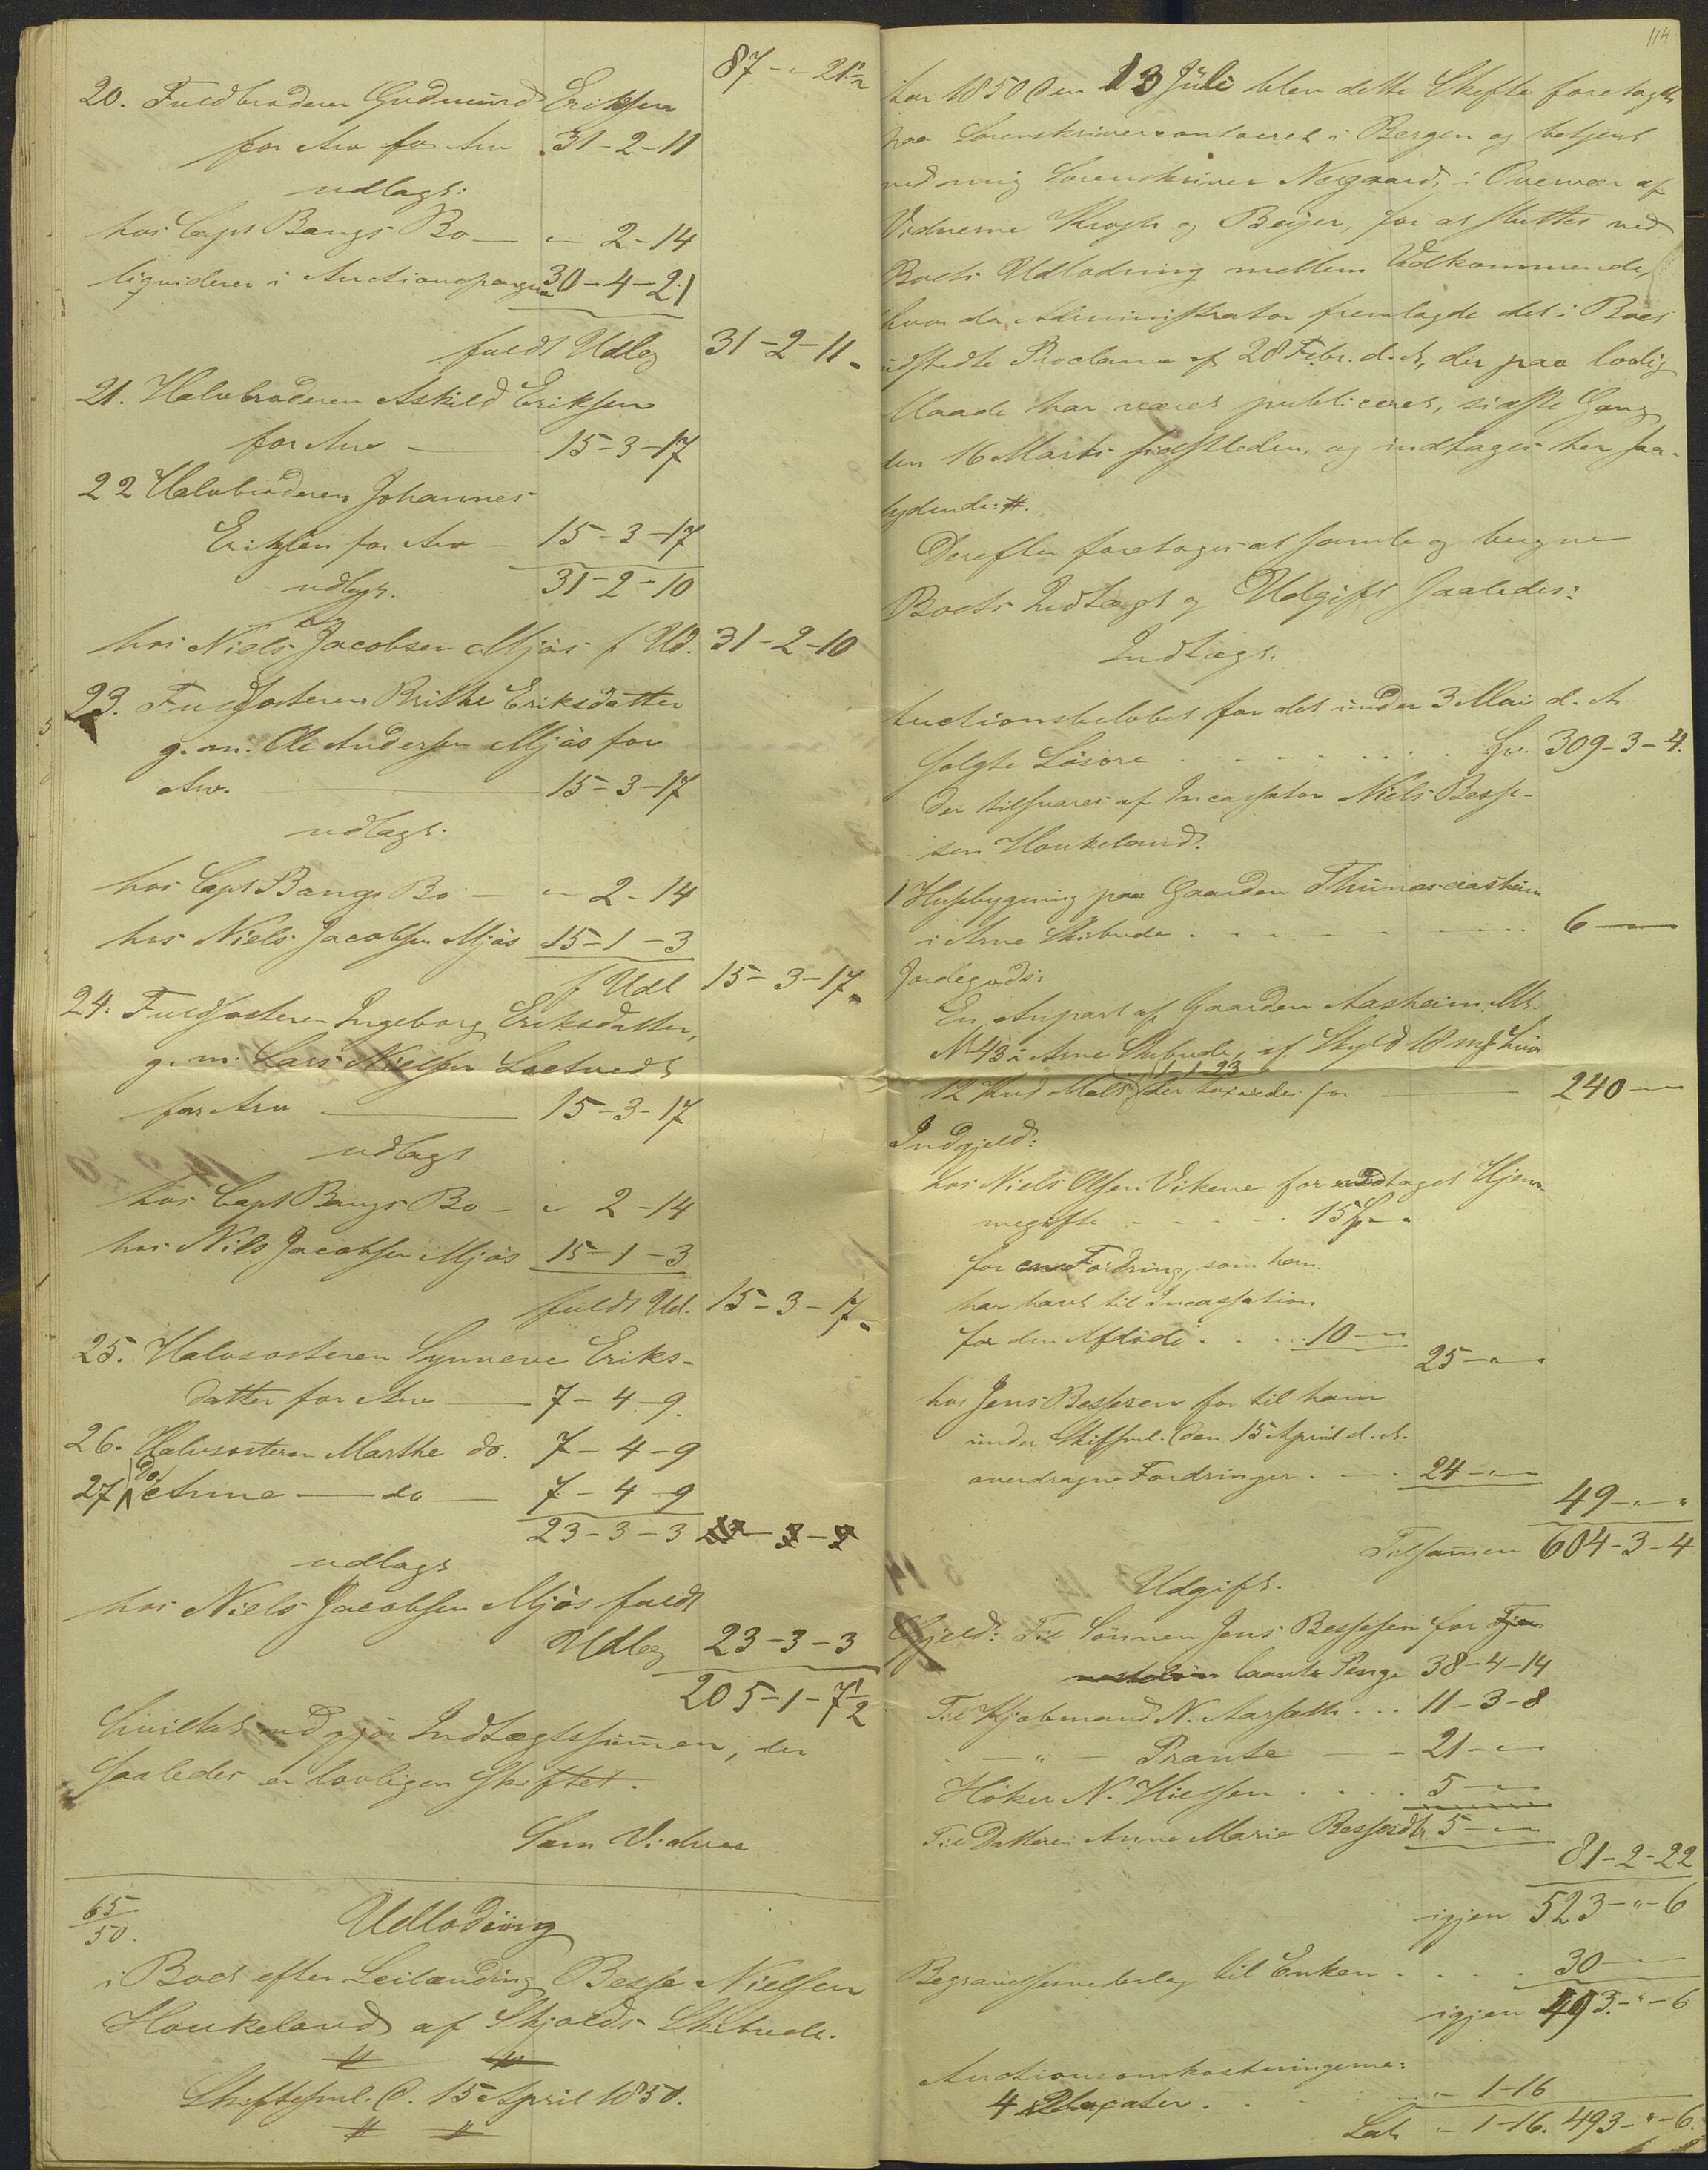 87 - " - 21½
20. Fuldbroderen Gudmund Eriksen
for Arv for Arv 31-2-11
udlagt:
hos Capt Bangs Bo — " - 2-14
liqviderer i Auctionspenge 30-4-21
fuldt Udlæg 31-2-11
21. Halvbroderen Askild Eriksen
for Arv — 15-3-17
22 Halvbroderen Johannes
Eriksen for Arv — 15-3-17
31-2-10
udlagt.
hos Niels Jacobsen Mjøs f Ud. 31-2-10
23. Fuldsøsteren Brithe Eriksdatter
g. m. Ole Andersen Mjøs for
Arv. — 15-3-17
udlagt.
hos Capt Bangs Bo — " - 2-14
hos Niels Jacobsen Mjøs 15-1-3
f Udl 15-3-17
24. Fuldsøsteren Ingeborg Eriksdatter,
g. m. Lars Nielsen Loetvedt
for Arv — 15-3-17
udlagt
hos Capt Bangs Bo - " 2-14
hos Nils Jacobsen Mjøs 15-1-3
fuldt Ud. 15-3-17
25. Halvsøsteren Synneve Eriks-
datter for Arv — 7-4-9.
26. Halvsøsteren Marthe do. 7-4-9
27 do Anne — do — 7-4-9
23-3-3
udlagt
hos Niels Jacobsen Mjøs fuldt
Udlæg 23-3-3
205-1-7½
hvilket udgjør Indtægtssummen, der
saaledes er lovligen skiftet.
Som Vidner
65/50.
Udlodning
i Boet efter Leilænding Besse Nielsen
Houkeland af Skjolds Skibrede.
Skiftesml. d. 15 April 1850.
114
Aar 1850 den 13 Juli blev dette Skifte foretaget
paa Sorenskrivercontoiret i Bergen og betjent
ved mig Sorenskriver Nygaard, i Overvær af
Vidnerne Krogh og Beyer, for at sluttes ved
Boets Udlodning mellem Vedkommende,
hvor da Administrator fremlagde det i Boet
udstedte Proclama af 28 Febr. d. A, der paa lovlig
Maade har været publiceret, sidste Gang
den 16 Marts sidstleden, og indtages her saa-
lydende: #.
Derefter foretoges at samle og beregne
Boets Indtægt og Udgift saaledes:
Indtægt.
Auctionsbeløbet for det under 3 Mai d. A.
solgte Løsøre . . . . . . 309-3-4.
der tilsvares af Incassator Niels Besse-
sen Houkeland.
1 Husebygning paa Gaarden
i Arne Skibrede . . . . . . 6 —
Jordegods:
En Anpart af Gaarden Aasheim Mt.
No 43 i Arne Skibrede, af Skyld 18 mk Smør
12 Knd Malt 1-1-23 der taxeredes for — 240 —
Indgjeld:
hos Niels Olsen Vikene for modtaget Hjem-
megifte . . . . . 15
for en Fordring, som han
har havt til Incassation
for den Afdøde . . . 10 —
25 - " - "
hos Jens Bessesen for til ham
under Skiftsml. den 15 April d. A.
overdragne Fordringer . . . 24 - " -
49 - " - "
Tilsammen 604-3-4
Udgift.
Gjeld: Til Sønnen Jens Bessesen for
laante Penge 38-4-14
Til Kjøbmand N. Aarsæth . . . 11-3-8
— " — Prante — - 21 - " -
Høker N. Nielsen . . . . 5 - " -
Til Datteren Anne Marie Bessesdtr. 5 - " -
81-2-22
igjen 523 - " - 6
Begravelsesvederlag til Enken . . . . 30 —
igjen 493 - " - 6
Auctionsomkostningerne:
4 Placater . . . " - 1-16
Lat. " - 1-16. 493 - " - 6